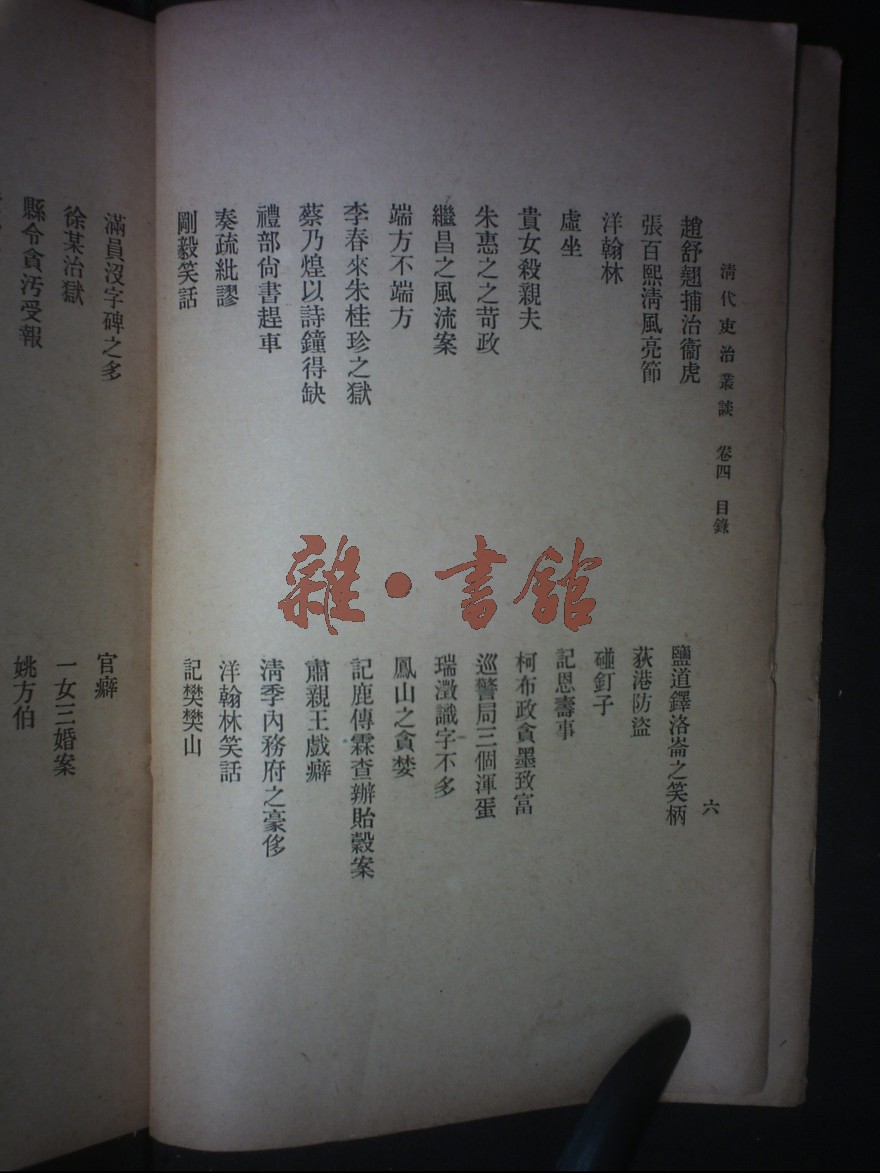 清代吏治叢談 卷四 目錄 六
趙舒翹捕治衞虎
鹽道鐸洛崙之笑柄
張百熙淸風亮節
荻港防盜
洋翰林
碰釘子
虛坐
記恩壽事
貴女殺親夫
柯布政貪墨致富
朱惠之之苛政
巡警局三個渾蛋
繼昌之風流案
瑞澂識字不多
端方不端方
鳳山之貪婪
李春來朱桂珍之獄
記鹿傳霖查辦貽穀案
蔡乃煌以詩鐘得缺
肅親王戲癖
禮部尙書趕車
淸季內務府之豪侈
奏疏紕謬
洋翰林笑話
剛毅笑話
記樊樊山
滿員沒字碑之多
官癖
徐某治獄
一女三婚案
縣令貪汚受報
姚方伯
雜·書館